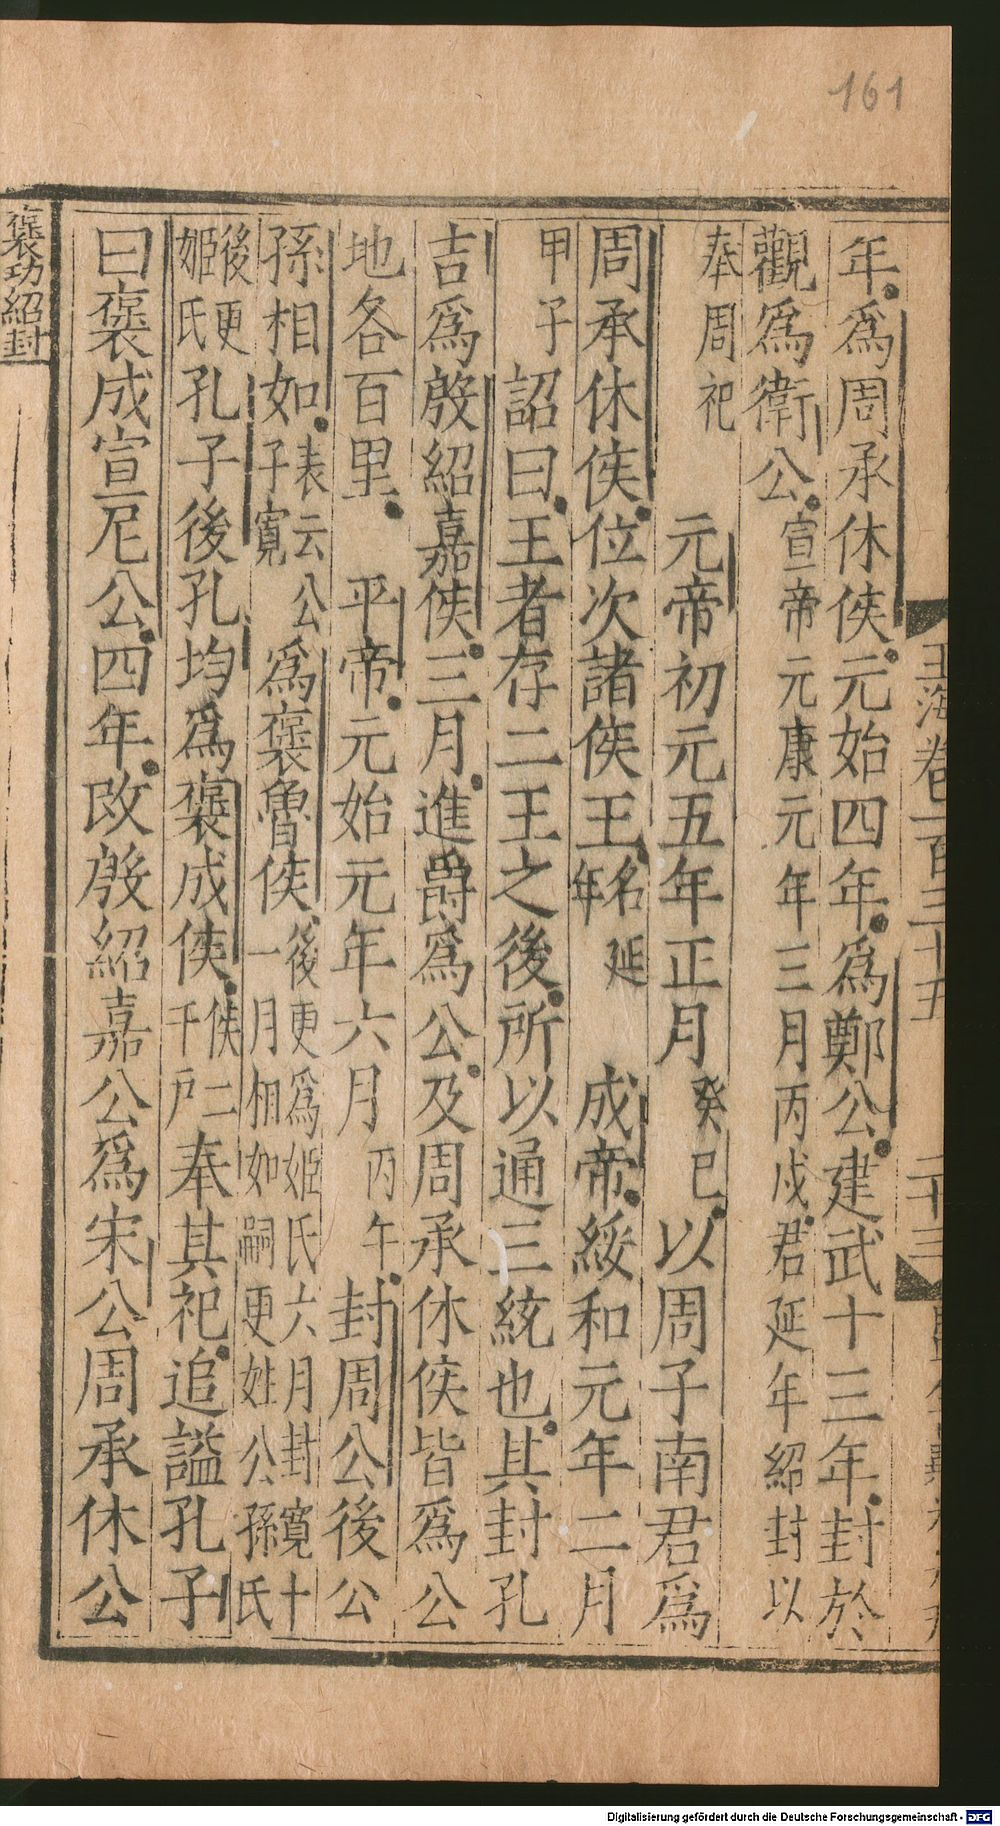 161
玉海卷一百三十五
二十三
年爲周承休侯元始四年爲鄭公建武十三年封於
觀爲衛公宣帝元康元年三月丙戍君延年紹封以
奉周祀
元帝初元五年正月癸巳以周子南君爲
周承休侯位次諸侯王名延年
成帝綏和元年二月
甲子詔曰王者存二王之後所以通三統也其封孔
吉爲殷紹嘉侯三月進爵爲公及周承休侯皆爲公
地各百里
平帝元始元年六月丙午封周公後公
孫相如表云公子寬爲襃魯侯後更爲姬氏六月封寬十一月相如嗣更姓公孫氏
後更姬氏孔子後孔均爲襃成侯侯二千戸奉其祀追謚孔子
曰襃成宣尼公四年改殷紹嘉公爲宋公周承休公
襃功紹封
Digitalisierung gefördert durch die Deutsche Forschungsgemeinschaft - DFG